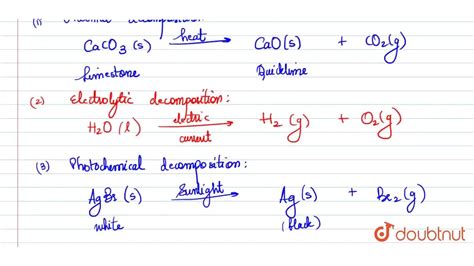 (1) Thermal decomposition:
CaCO₃ (s) heat → CaO(s) + CO₂(g)
Limestone Quicklime
(2) Electrolytic decomposition:
H₂O (l) electric current → H₂ (g) + O₂(g)
(3) Photochemical decomposition:
AgBr (s) Sunlight → Ag (s) + Br₂(g)
white (black)
doubtnut